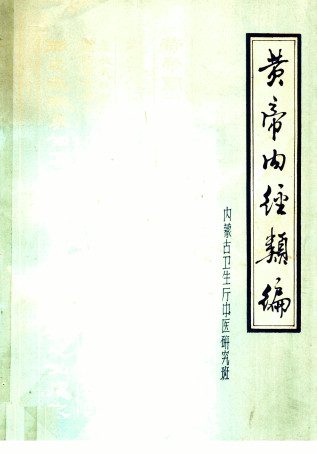 黄帝内经類编
内蒙古卫生厅中医研究班